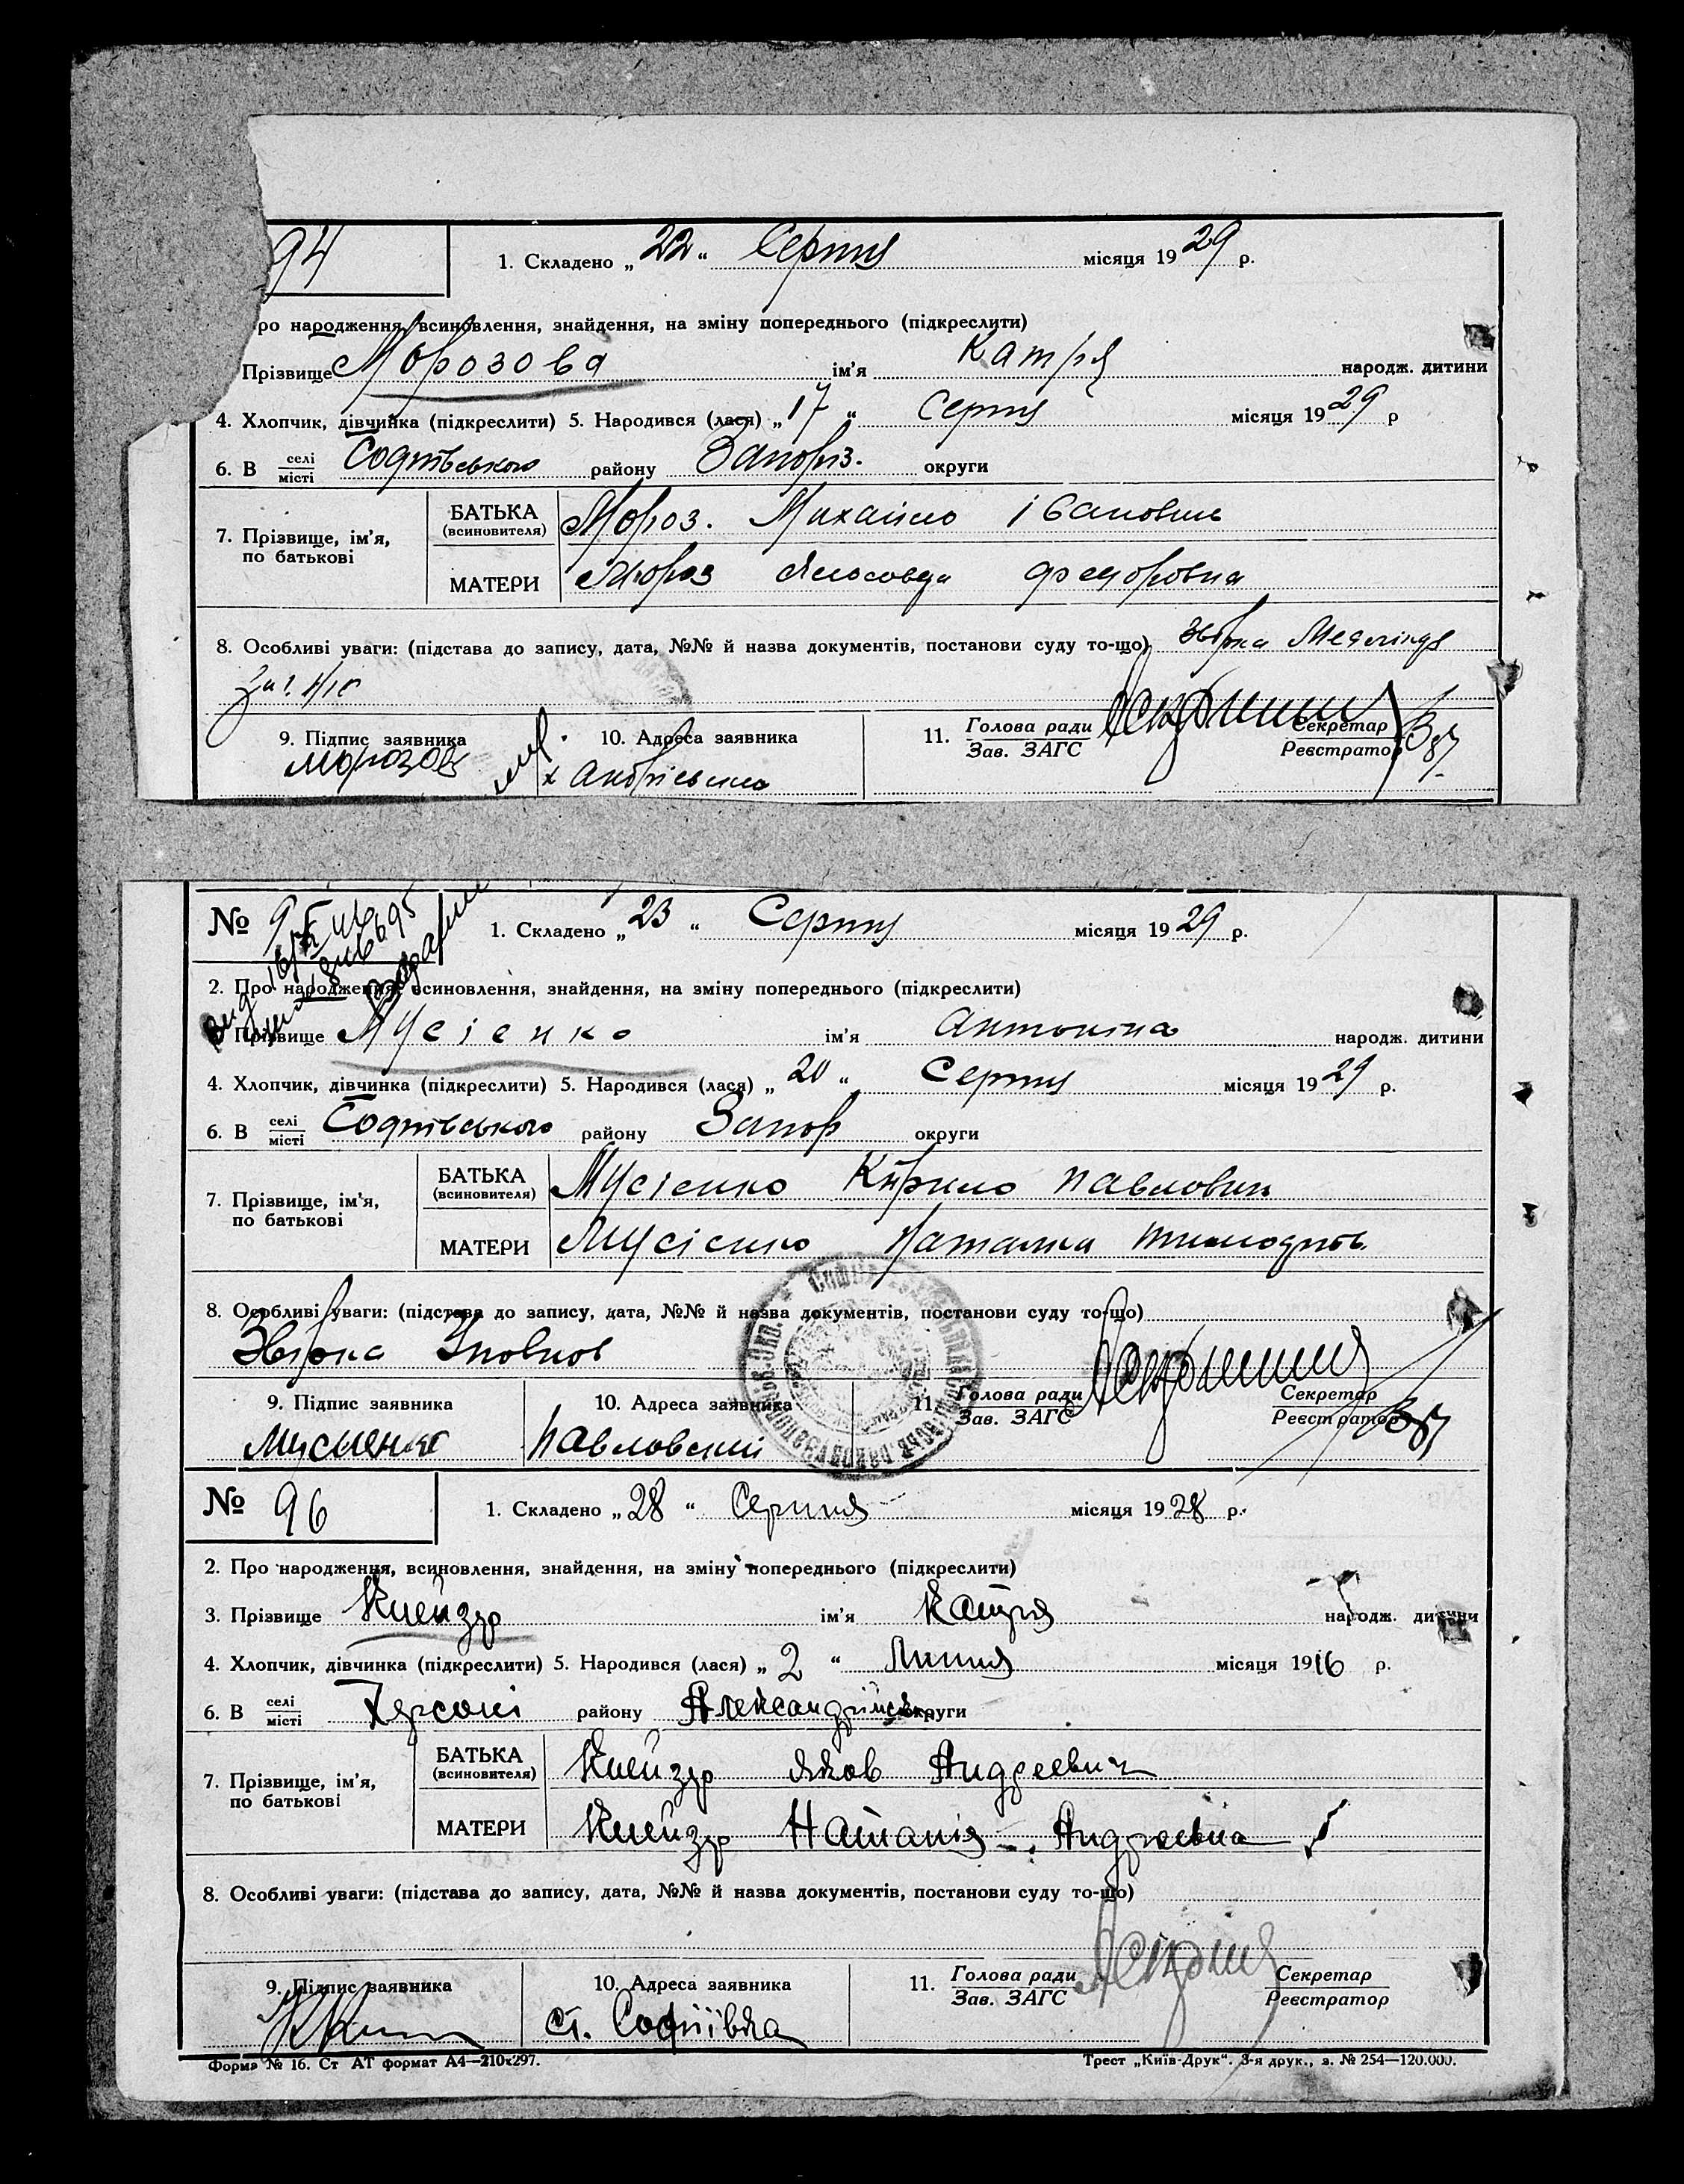 94
1. Складено „ 22 “ Серпня місяця 19 29 р.
ро народження, всиновлення, знайдення, на зміну попереднього (підкреслити)
Прізвище Морозова ім'я Катря народж. дитини
4. Хлопчик, дівчинка (підкреслити) 5. Народився (лася) „ 17 “ Серпня місяця 19 29 р
6. В селі/місті Софіївського району Запоріз. округи
7. Прізвище, ім'я, по батькові
БАТЬКА (всиновителя) Мороз. Михайло Іванович
МАТЕРИ Мороз Федоровна
8. Особливі уваги: (підстава до запису, дата, №№ й назва документів, постанови суду то-що) Звірка
9. Підпис заявника
Морозов
10. Адреса заявника
х Андріевка
11. Голова ради/Зав. ЗАГС
Секретар/Реєстратор
№ 95
1. Складено „ 23 “ Серпня місяця 19 29 р.
2. Про народження, всиновлення, знайдення, на зміну попереднього (підкреслити)
Прізвище Мусіенко ім'я Антоніна народж. дитини
4. Хлопчик, дівчинка (підкреслити) 5. Народився (лася) „ 20 “ Серпня місяця 19 29 р.
6. В селі/місті Софіївського району Запор округи
7. Прізвище, ім'я, по батькові
БАТЬКА (всиновителя) Мусіенко Кирило Павлович
МАТЕРИ Мусіенко Наталка Тимофіїв.
8. Особливі уваги: (підстава до запису, дата, №№ й назва документів, постанови суду то-що)
Звірка
9. Підпис заявника
Мусиенко
10. Адреса заявника
Павловский
11. Голова ради/Зав. ЗАГС
Секретар/Реєстратор
№ 96
1. Складено „ 28 “ Серпня місяця 19 28 р.
2. Про народження, всиновлення, знайдення, на зміну попереднього (підкреслити)
3. Прізвище Кнейзр ім'я Катря народж. дитини
4. Хлопчик, дівчинка (підкреслити) 5. Народився (лася) „ 2 “ Липня місяця 19 16 р.
6. В селі/місті Херсоні району Александрійськ. округи
7. Прізвище, ім'я, по батькові
БАТЬКА (всиновителя) Кнейзр Яков Андреевич
МАТЕРИ Кнейзр Наталія Андреевна
8. Особливі уваги: (підстава до запису, дата, №№ й назва документів, постанови суду то-що)
9. Підпис заявника
10. Адреса заявника
ст. Софіївка
11. Голова ради/Зав. ЗАГС
Секретар/Реєстратор
Форма № 16. Ст АТ формат А4—210х297.
Трест „Київ-Друк“. 3-я друк., з. № 254—120.000.